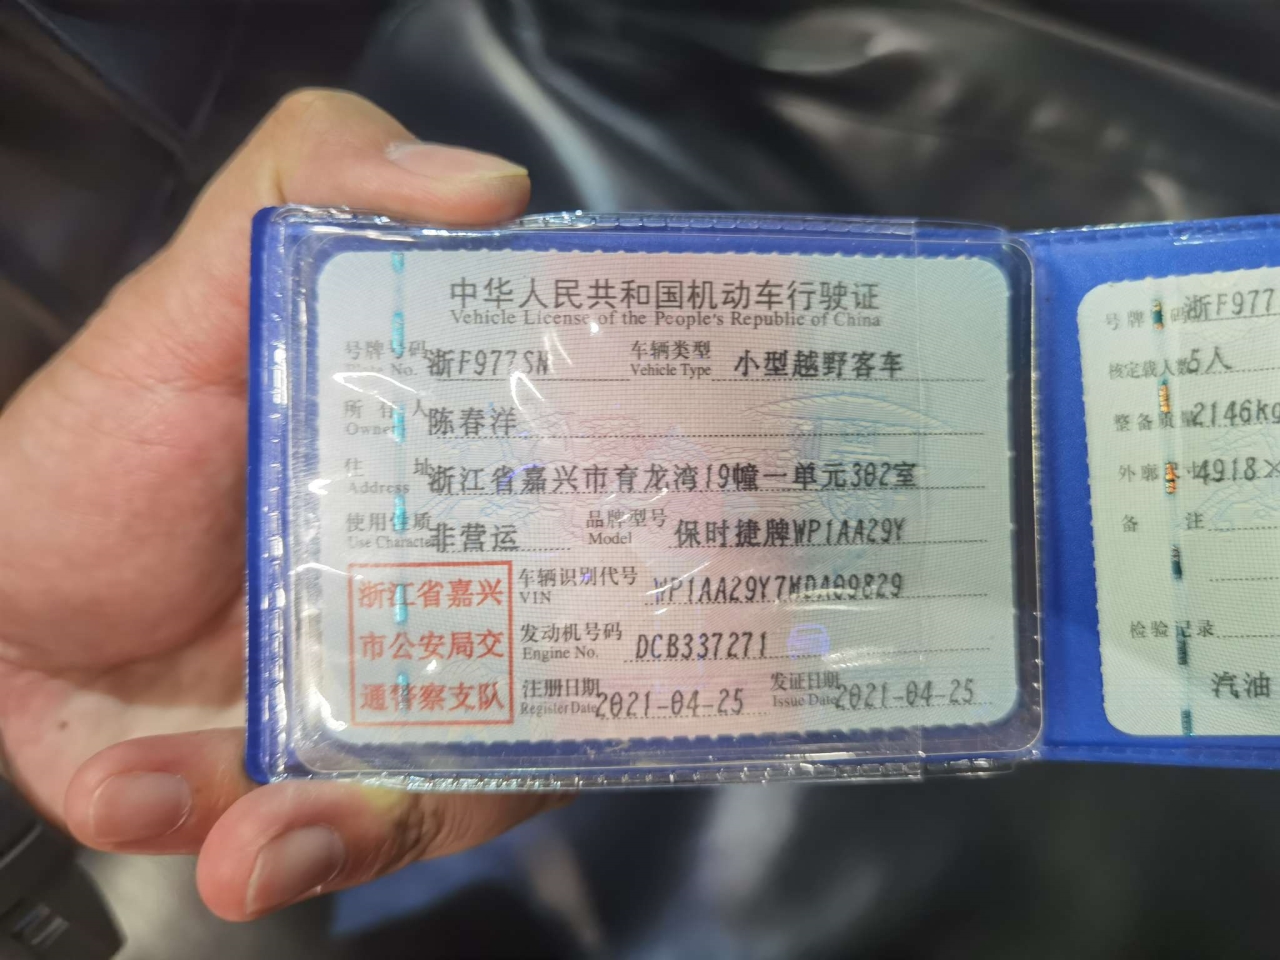 中华人民共和国机动车行驶证
Vehicle License of the People's Republic of China
号牌号码 浙F977SN 车辆类型 小型越野客车
No. Vehicle Type
所有人 陈春洋
Owner
住址 浙江省嘉兴市育龙湾19幢一单元302室
Address
使用性质 非营运 品牌型号 保时捷牌WP1AA29Y
Use Character Model
浙江省嘉兴
市公安局交
通警察支队
车辆识别代号 WP1AA29Y7MDA09829
VIN
发动机号码 DCB337271
Engine No.
注册日期 2021-04-25 发证日期 2021-04-25
Register Date Issue Date
号牌号码 浙F977
核定载人数 5人
整备质量 2146kg
外廓尺寸 4918×
备注
检验记录
汽油